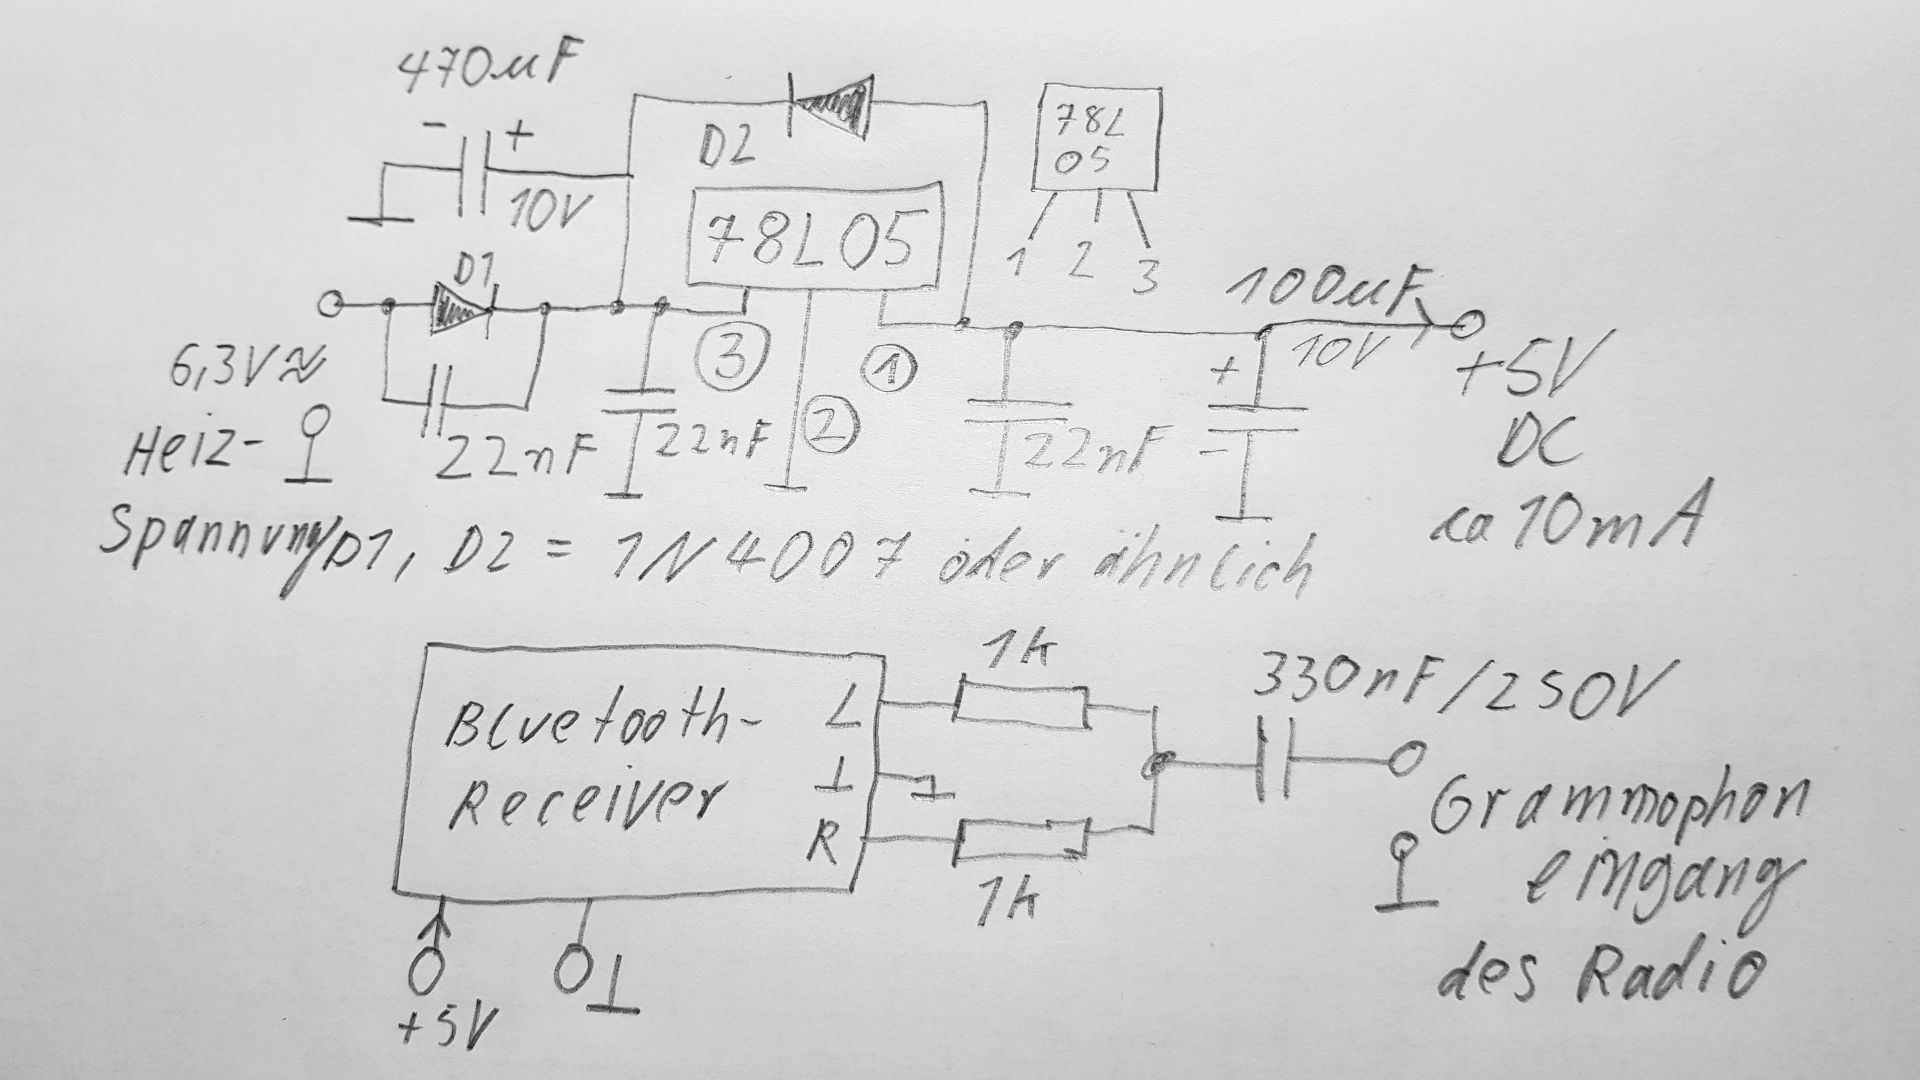 470uF
- +
10V
D2
78L
05
1 2 3
78L05
D1
3
2
1
100uF
10V
6,3V≈
Heiz-
Spannung
22nF
22nF
22nF
+
-
+5V
DC
ca 10mA
D1, D2 = 1N4007 oder ähnlich
1k
330nF/250V
Bluetooth-
Receiver
L
⊥
R
1k
Grammophon
eingang
des Radio
+5V
⊥